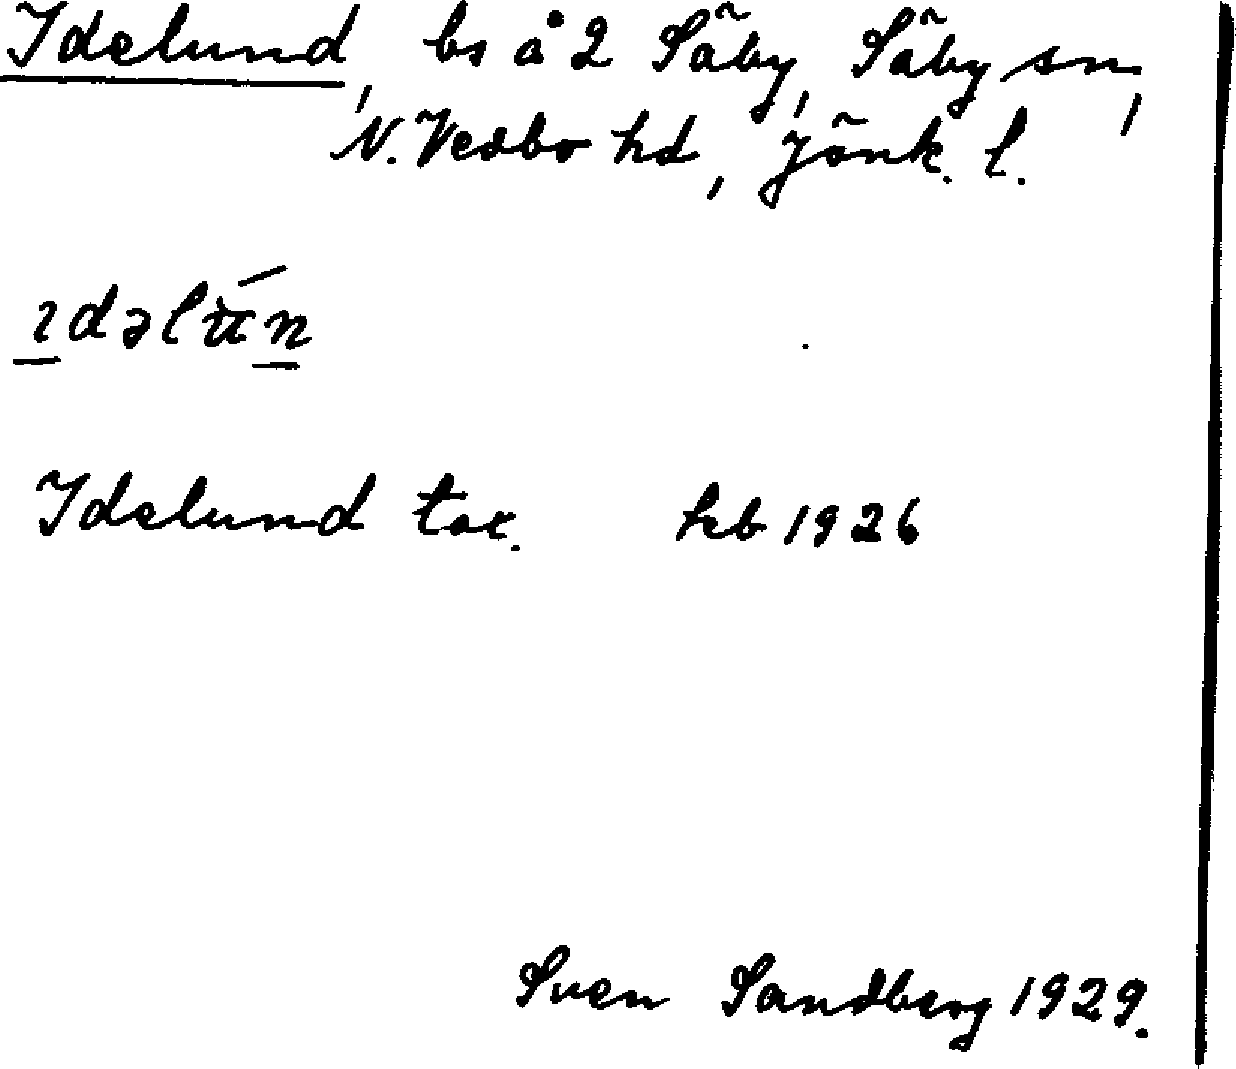 Idelund, bs å 2 Säby, Säby sn,
N. Vedbo hd, Jönk. l.
Idelund tor. hb 1926
Sven Sandberg 1929.